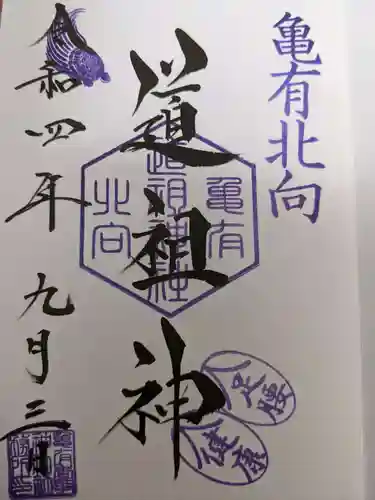 亀有北向
道祖神
令和四年九月三日
亀有
道祖神社
北向
足腰
健康